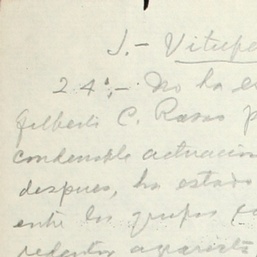 J.- Vitupe
24º.- No ha e
Gilberto C. Rasas p
condenable actuacion
despues, ha estado
entre los grupos
redentor aprista